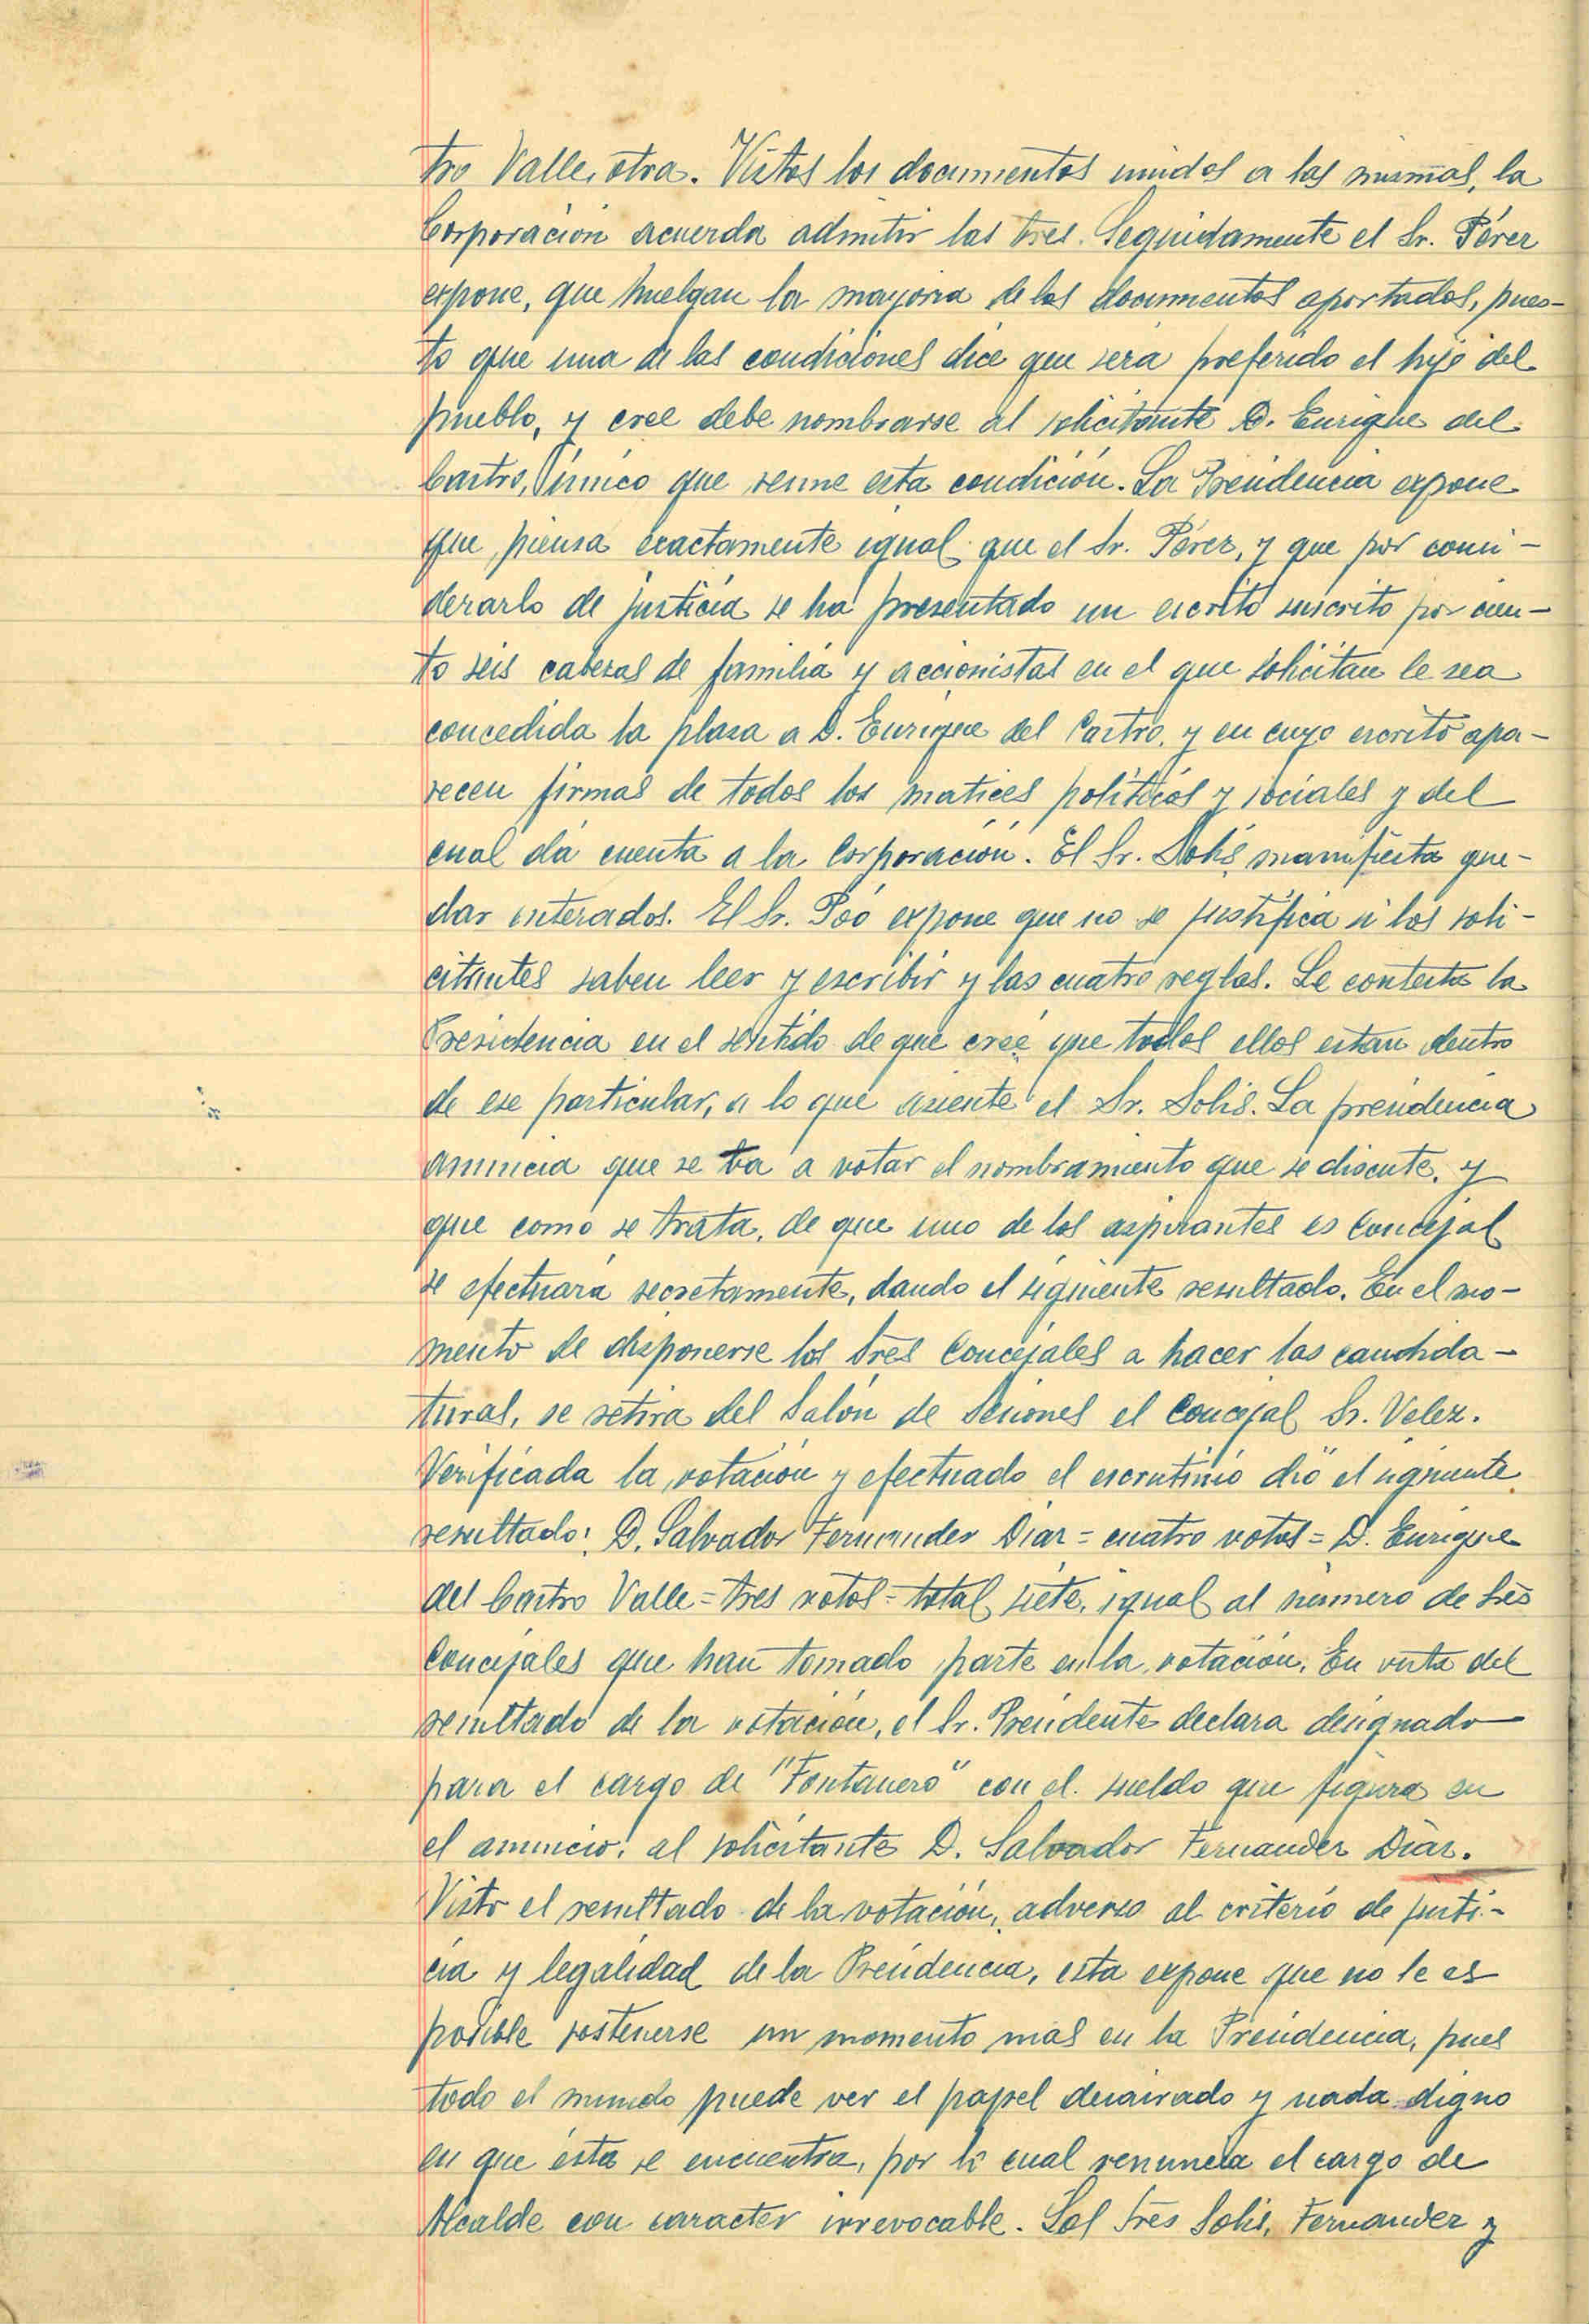 tro Valle, otra. Vistos los documentos unidos a las mismas, la
Corporación acuerda admitir las tres. Seguidamente el Sr. Pérez
expone, que huelgan la mayoria de los documentos aportados, pues-
to que una de las condiciones dice que será preferido el hijo del
pueblo, y cree debe nombrarse al solicitante D. Enrique del
Castro, único que reune esta condición. La Presidencia expone
que piensa exactamente igual que el Sr. Pérez, y que por consi-
derarlo de justicia se ha presentado un escrito suscrito por cien-
to seis cabezas de familia y accionistas en el que solicitan le sea
concedida la plaza a D. Enrique del Castro, y en cuyo escrito apa-
recen firmas de todos los matices políticos y sociales y del
cual dá cuenta a la Corporación. El Sr. Solís manifiesta que-
dar enterados. El Sr. Poó expone que no se justifica si los soli-
citantes saben leer y escribir y las cuatro reglas. Le contesta la
Presidencia en el sentido de que cree que todos ellos estan dentro
de ese particular, a lo que asiente el Sr. Solís. La presidencia
anuncia que se va a votar el nombramiento que se discute, y
que como se trata, de que uno de los aspirantes es Concejal
se efectuará secretamente, dando el siguiente resultado. En el mo-
mento de disponerse los Sres Concejales a hacer las candida-
turas, se retira del Salón de Sesiones el Concejal Sr. Velez.
Verificada la votación y efectuado el escrutinio dió el siguiente
resultado: D. Salvador Fernandez Diaz = cuatro votos = D. Enrique
del Castro Valle = tres votos = total siete, igual al número de Sres
Concejales que han tomado parte en la votación. En vista del
resultado de la votación, el Sr. Presidente declara designado
para el cargo de "Fontanero" con el sueldo que figura en
el anuncio, al solicitante D. Salvador Fernandez Diaz.
Visto el resultado de la votación, adverso al criterio de justi-
cia y legalidad de la Presidencia, esta expone que no le es
posible sostenerse un momento mas en la Presidencia, pues
todo el mundo puede ver el papel desairado y nada digno
en que ésta se encuentra, por lo cual renuncia el cargo de
Alcalde con caracter irrevocable. Los Sres Solis, Fernandez y